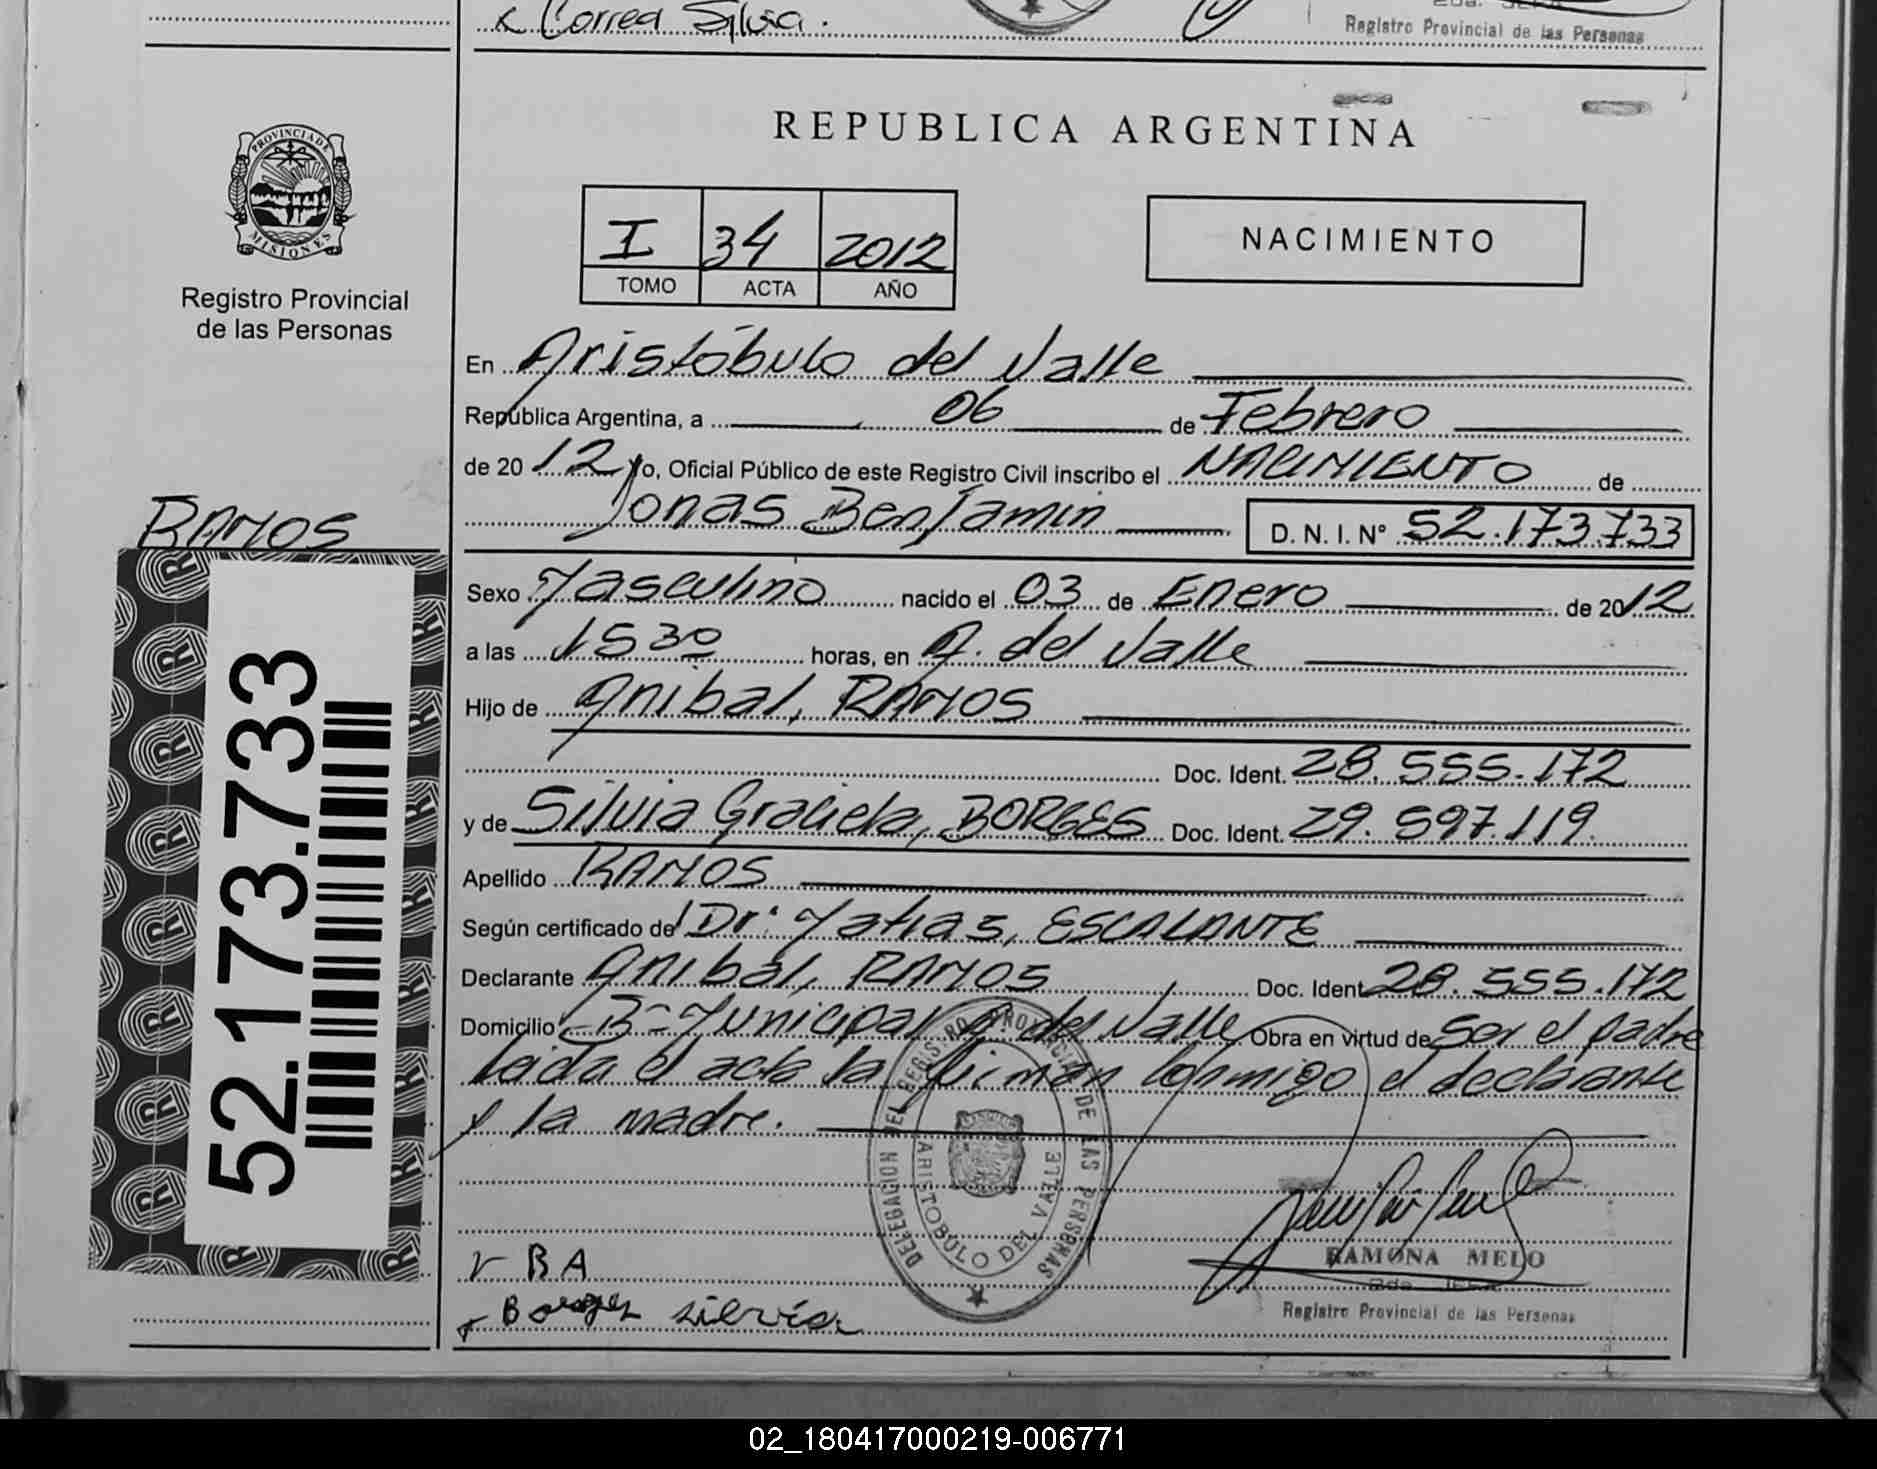 x Correa Silvia.
Registro Provincial de las Personas
PROVINCIA DE
MISIONES
Registro Provincial
de las Personas
REPUBLICA ARGENTINA
I 34 2012
TOMO ACTA AÑO
NACIMIENTO
En Aristóbulo del Valle
República Argentina, a 06 de Febrero
de 20 12 Yo, Oficial Público de este Registro Civil inscribo el NACIMIENTO de
Jonas Benjamin D. N. I. N° 52.173.733
RAMOS
52.173.733
Sexo Masculino nacido el 03 de Enero de 20 12
a las 15 30 horas, en A. del Valle
Hijo de Anibal, RAMOS
Doc. Ident. 28.555.172
y de Silvia Graciela, BORGES Doc. Ident. 29.597.119.
Apellido RAMOS
Según certificado del Dr. Matias, ESCALANTE
Declarante Anibal, RAMOS Doc. Ident. 28.555.172
Domicilio B- Municipal A. del Valle Obra en virtud de Ser el padre
leida el acta la firman conmigo el declarante
y la madre.
DELEGACION DEL REGISTRO PROVINCIAL DE LAS PERSONAS
ARISTOBULO DEL VALLE
RAMONA MELO
Registro Provincial de las Personas
x BA
x Borges silvia
02_180417000219-006771